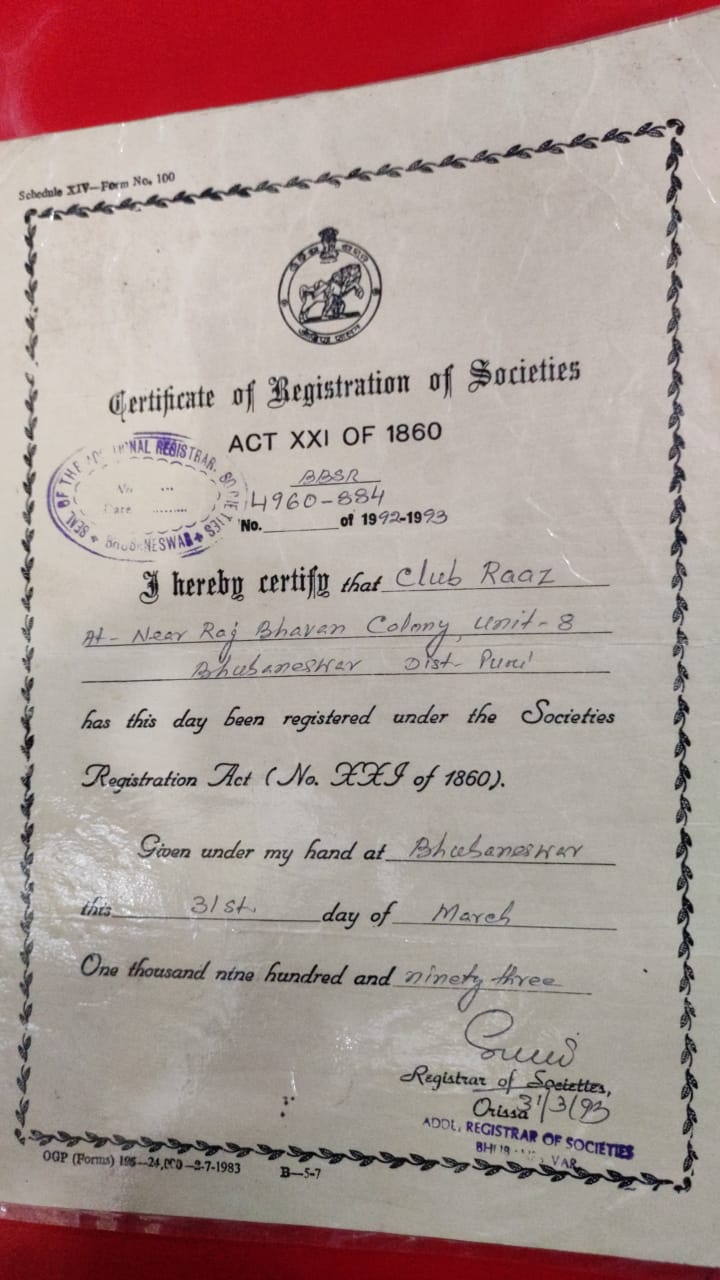 Schedule XIV—Form No. 100
Certificate of Registration of Societies
ACT XXI OF 1860
SEAL OF THE REGISTRAR, SOCIETIES
BHUBANESWAR
No. ...
Date ........
BBSR
4960-884
No. of 1992-1993
I hereby certify that Club Raaz
At- Near Raj Bhavan Colony, Unit-8
Bhubaneswar Dist- Puri
has this day been registered under the Societies
Registration Act (No. XXI of 1860).
Given under my hand at Bhubaneswar
this 31st day of March
One thousand nine hundred and ninety three
Registrar of Societies,
Orissa 31/3/93
ADDL. REGISTRAR OF SOCIETIES
OGP (Forms) 24,000—2-7-1983 B—5-7